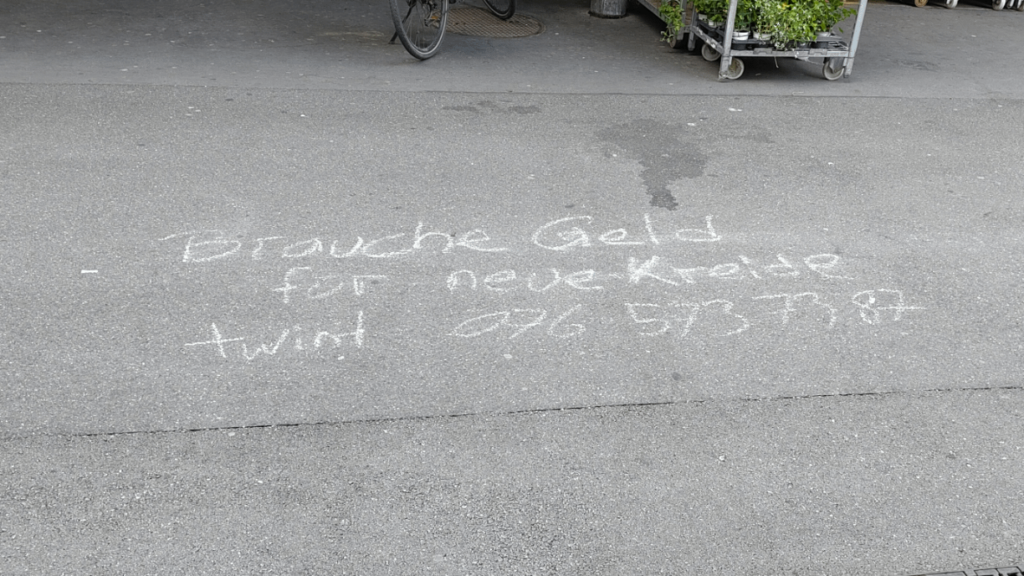 Brauche Geld
für neue Kreide
twint 076 573 73 87